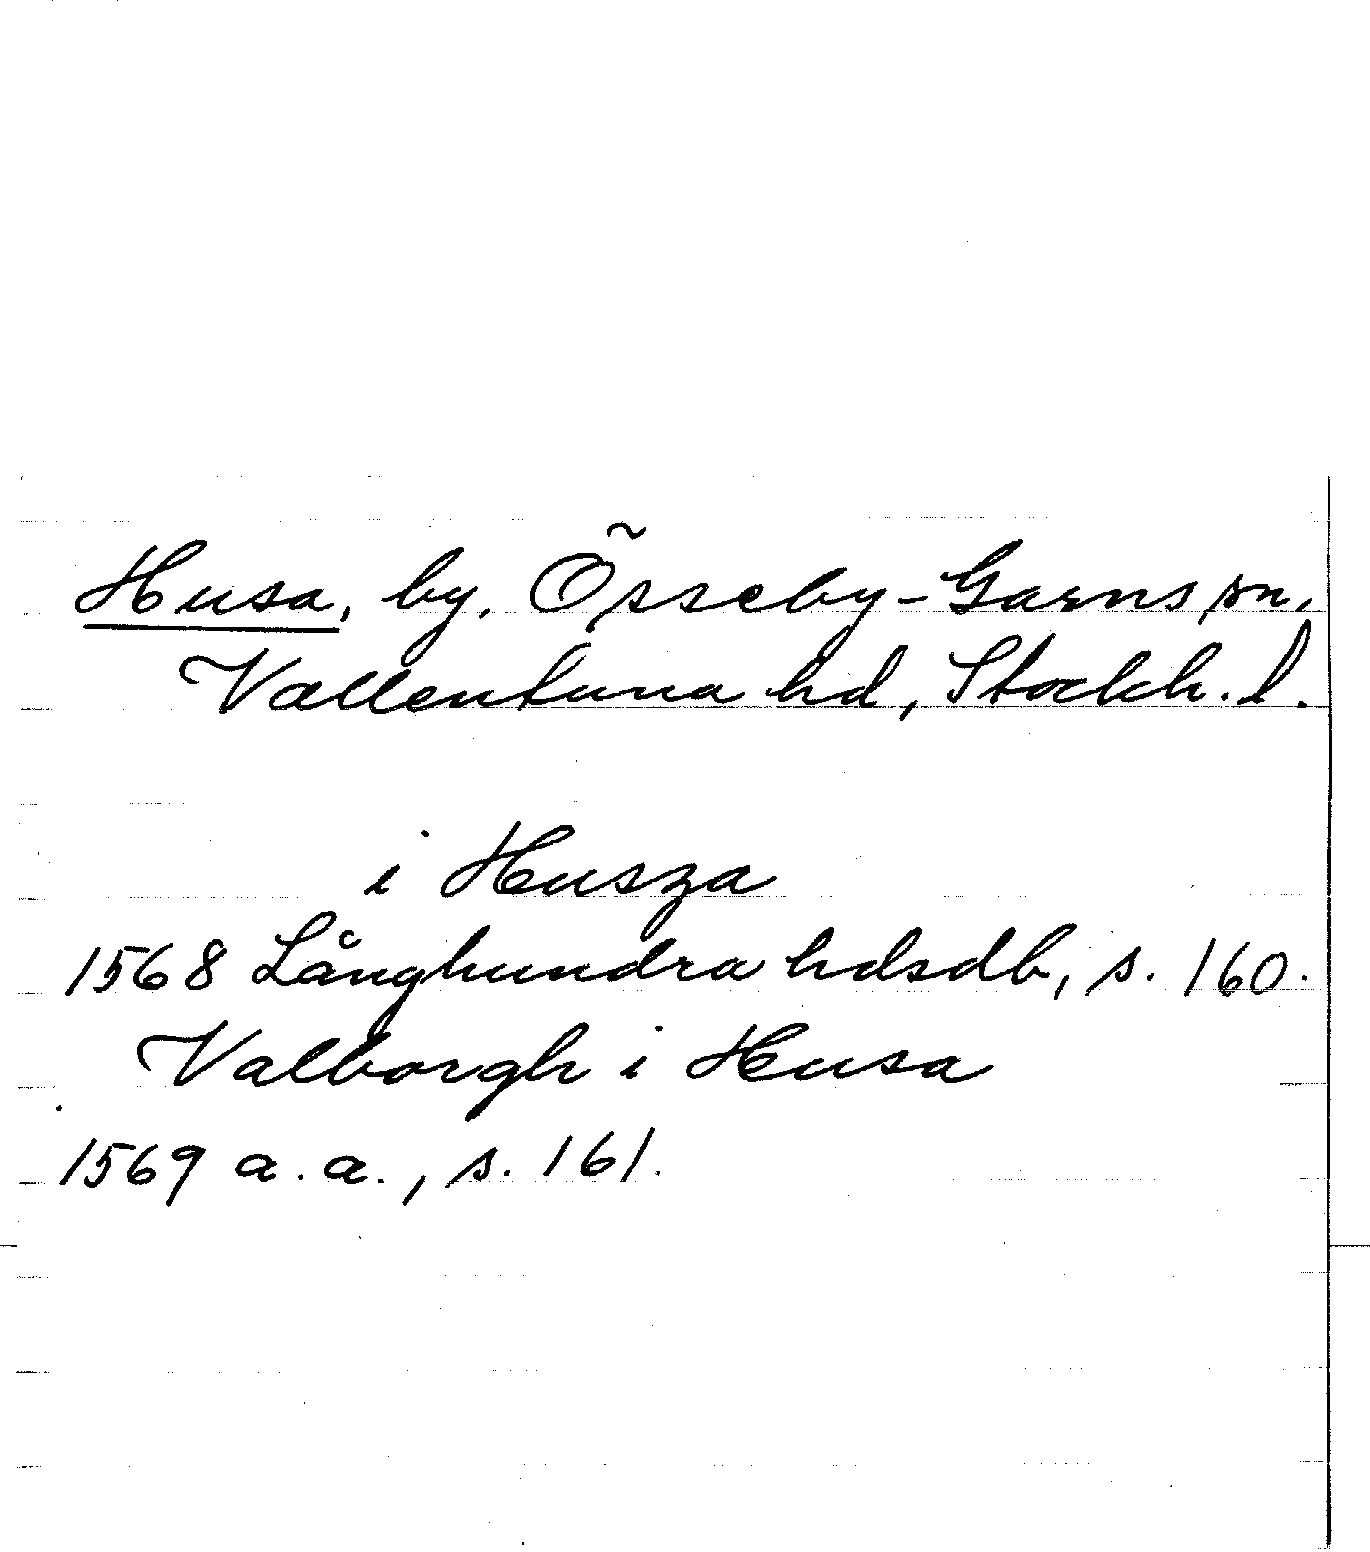 Husa, by, Össeby-Garns sn,
Vallentuna hd, Stockh. l.
i Husza
1568 Långhundra hdsdb, s. 160.
Valborgh i Husa
1569 a.a., s. 161.